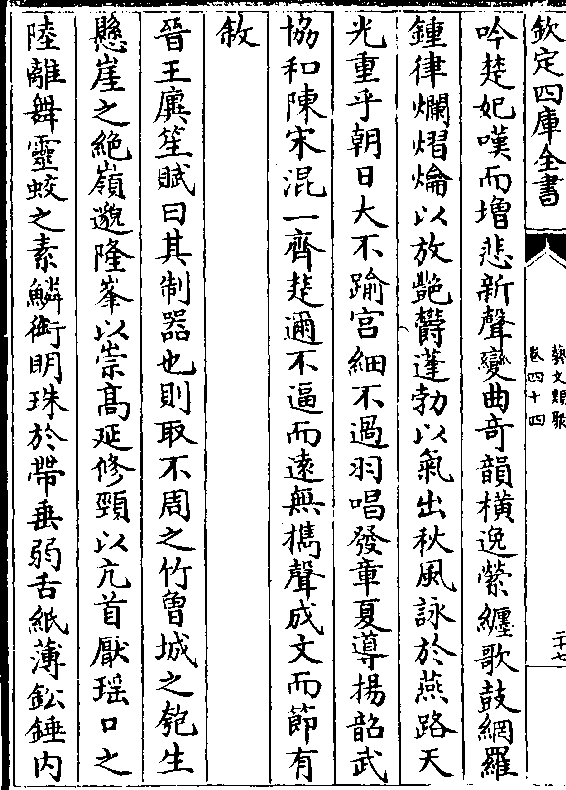 欽定四庫全書
藝文類聚
卷四十四
二十七
吟楚妃嘆而增悲新聲變曲奇韻橫逸縈纏歌鼓網羅
鍾律爛熠爚以放艷欝蓬勃以氣出秋風詠於燕路天
光重乎朝日大不踰宫細不過羽唱發章夏導揚韶武
協和陳宋混一齊楚邇不逼而遠無攜聲成文而節有
敘
晉王廙笙賦曰其制器也則取不周之竹曾城之匏生
懸崖之絶嶺邈隆峯以崇髙延修頸以亢首厭瑶口之
陸離舞靈蛟之素鱗銜明珠於帶垂弱舌紙薄鈆錘内